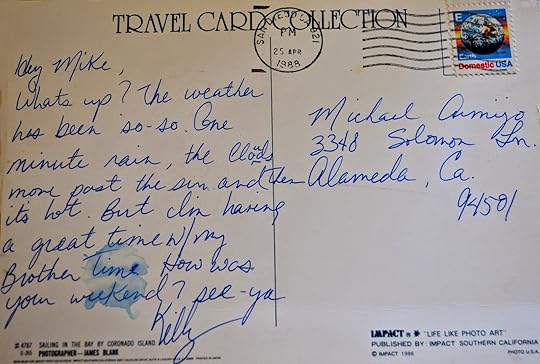 TRAVEL CARD COLLECTION
SAN YSIDRO, CA 921
PM
25 APR
1988
E
Earth
Domestic USA
Hey Mike,
Whats up? The weather
has been so-so. One
minute rain, the clouds
move past the sun and then
its hot. But I'm having
a great time w/my
Brother time. How was
your weekend? see-ya
Kelly
Michael Armijo
3348 Solomon Ln.
Alameda, Ca.
94501
#4767 SAILING IN THE BAY BY CORONADO ISLAND
G-265 PHOTOGRAPHER—JAMES BLANK
IMPACT "LIFE LIKE PHOTO ART"
PUBLISHED BY: IMPACT SOUTHERN CALIFORNIA
© IMPACT 1986 PHOTO U.S.A.